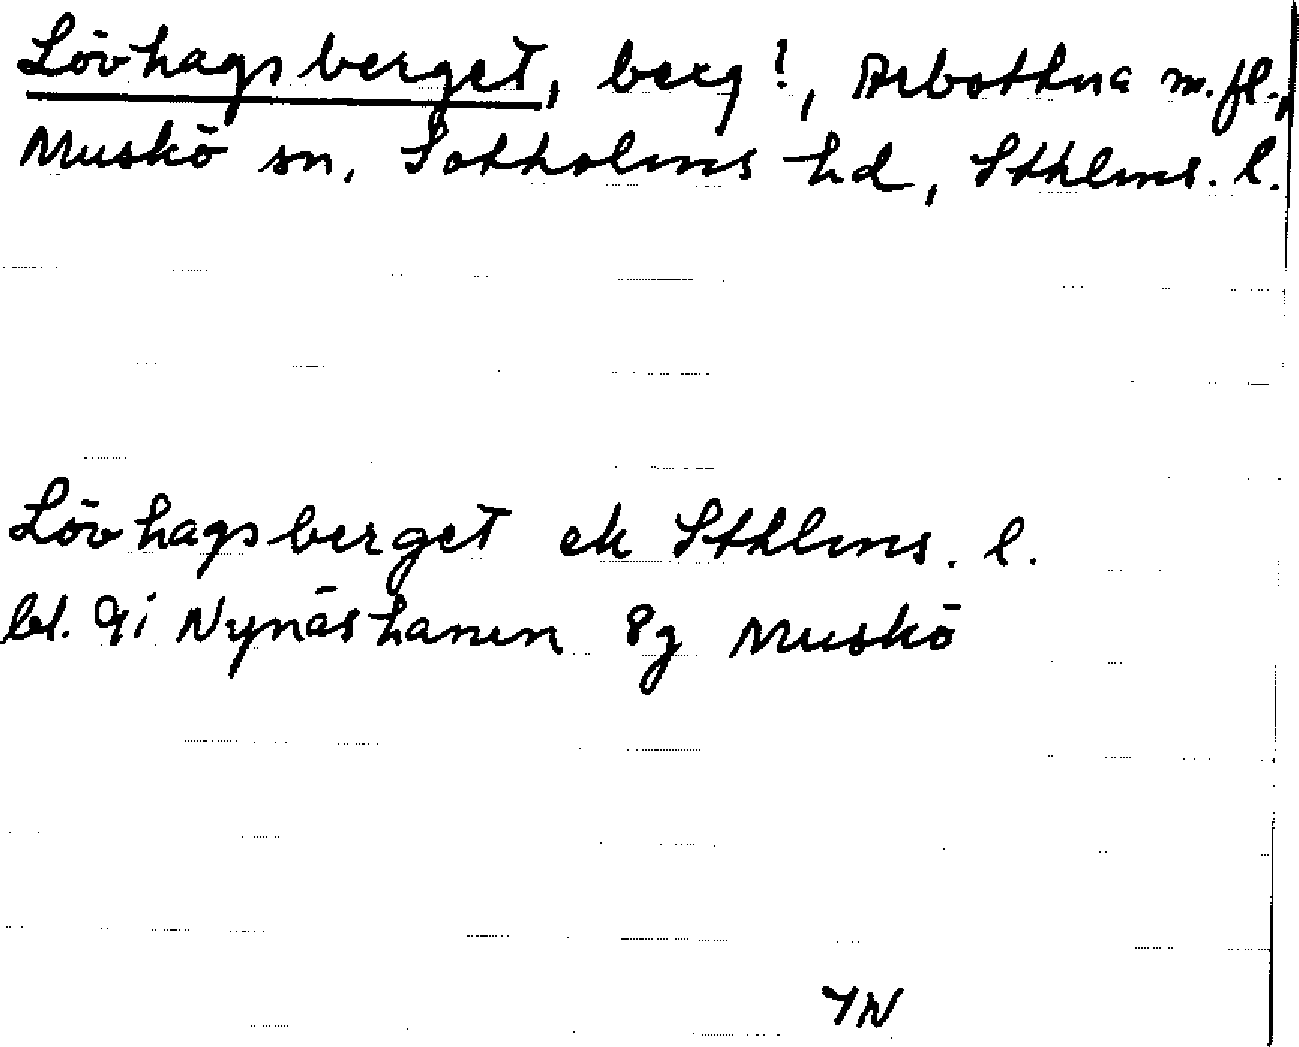 Lövhagsberget, berg!, Arbottna m.fl.,
Muskö sn, Sotholms hd, Sthlms. l.
Lövhagsberget ek Sthlms. l.
bl. 9i Nynäshamn 8g Muskö
YN